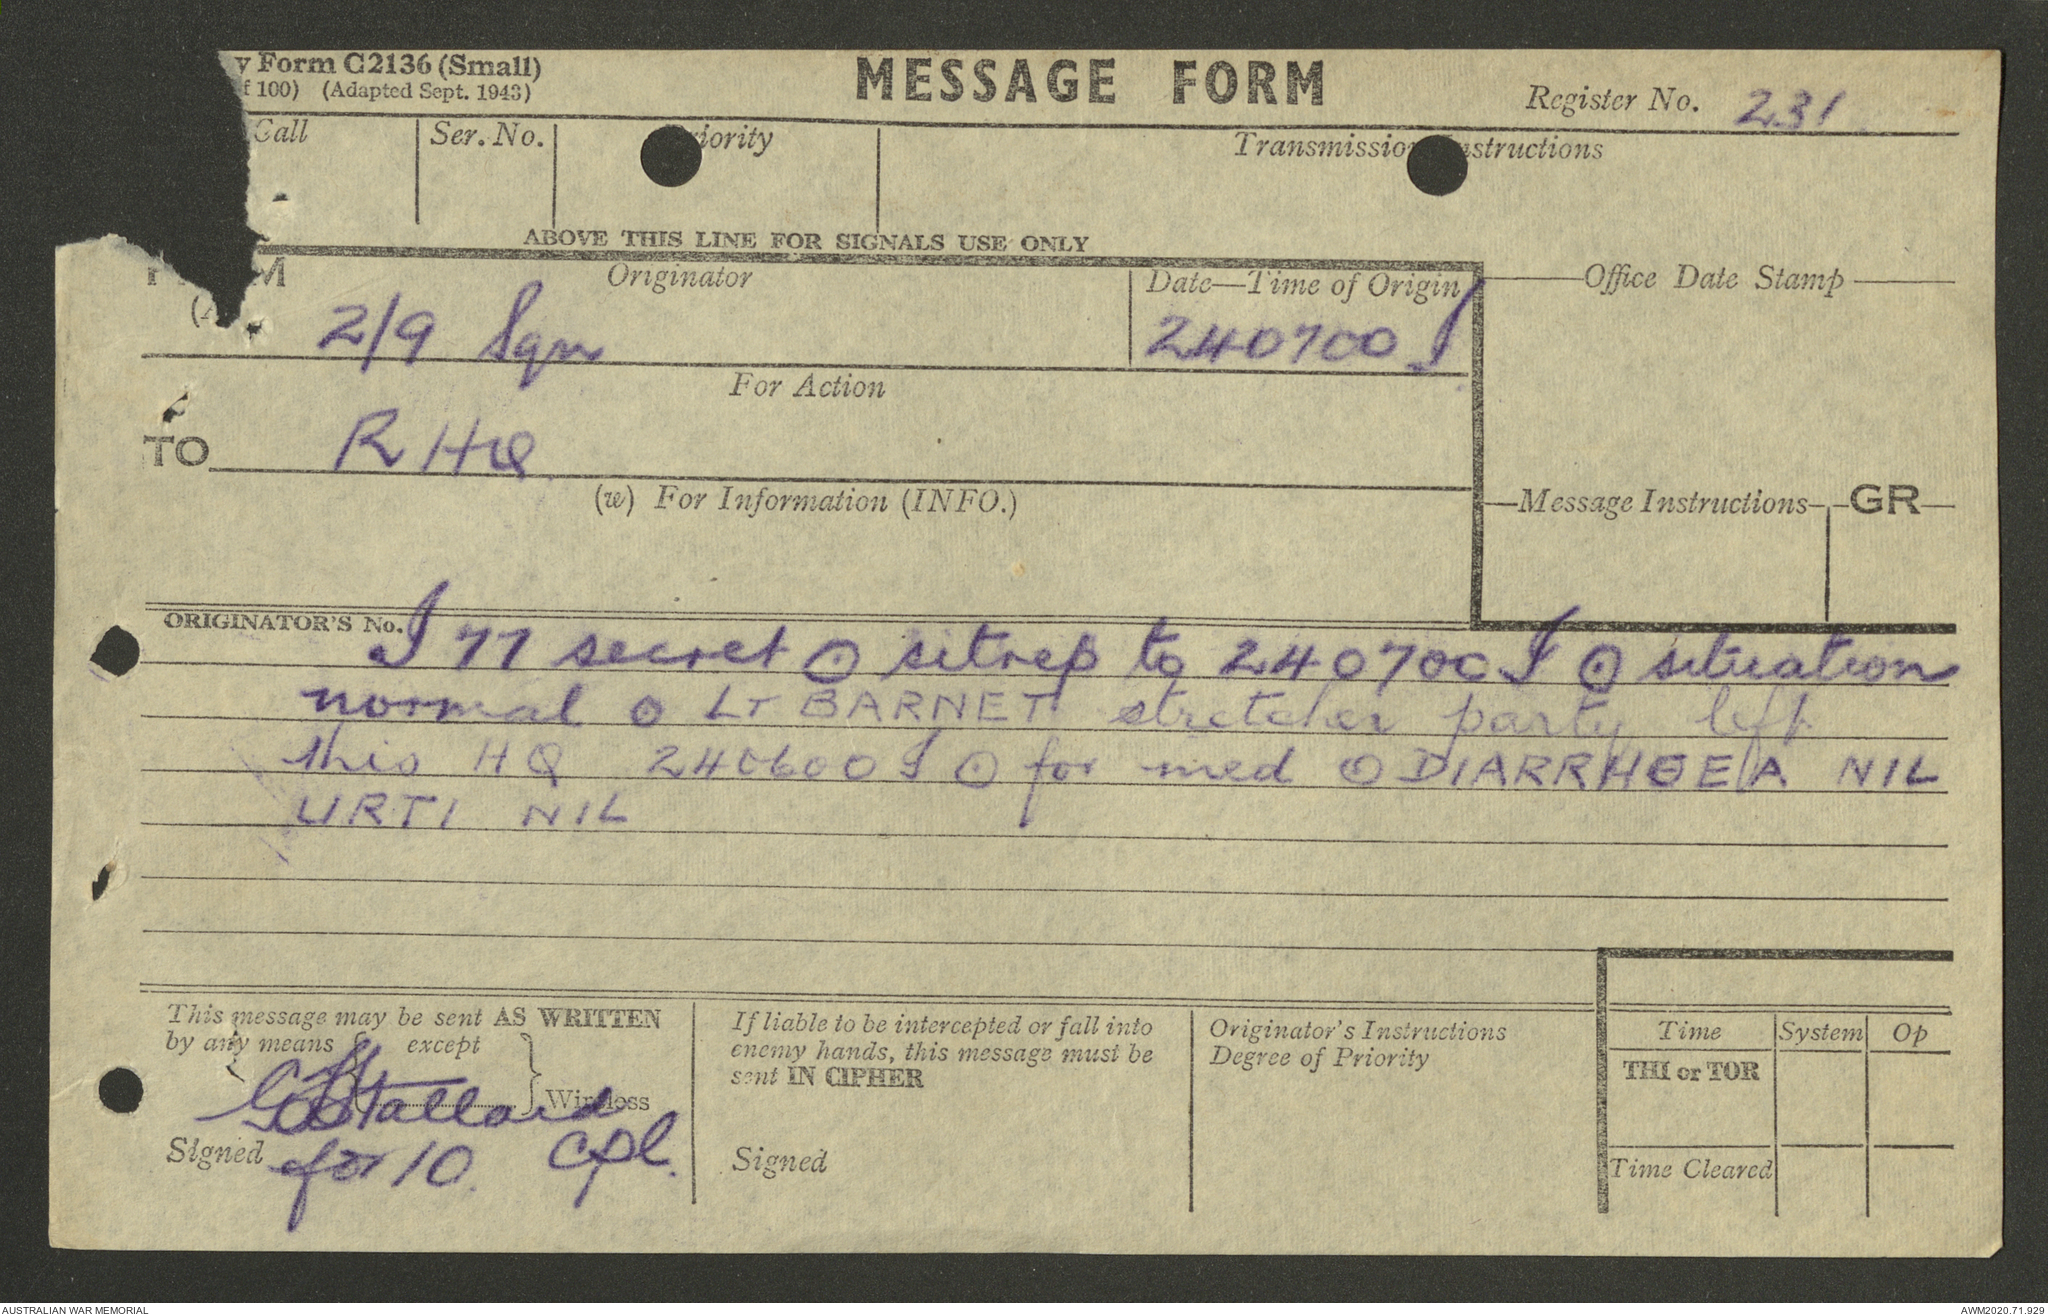 y Form C2136 (Small)
f 100) (Adapted Sept. 1943)
MESSAGE FORM
Register No. 231
Call
Ser. No.
riority
Transmissio nstructions
ABOVE THIS LINE FOR SIGNALS USE ONLY
M
Originator
Date—Time of Origin
Office Date Stamp
(A
2/9 Sqn
240700 I
For Action
TO
R HQ
(w) For Information (INFO.)
Message Instructions
GR
ORIGINATOR'S No.
I 77 secret ⊙ sitrep to 240700 I ⊙ situation
normal ⊙ LT BARNET stretcher party left
this HQ 240600 I ⊙ for med ⊙ DIARRHOEA NIL
URTI NIL
This message may be sent AS WRITTEN
by any means except
Wireless
Stallard
Signed for IO. Cpl.
If liable to be intercepted or fall into
enemy hands, this message must be
sent IN CIPHER
Signed
Originator's Instructions
Degree of Priority
Time System Op
THI or TOR
Time Cleared
AUSTRALIAN WAR MEMORIAL
AWM2020.71.929